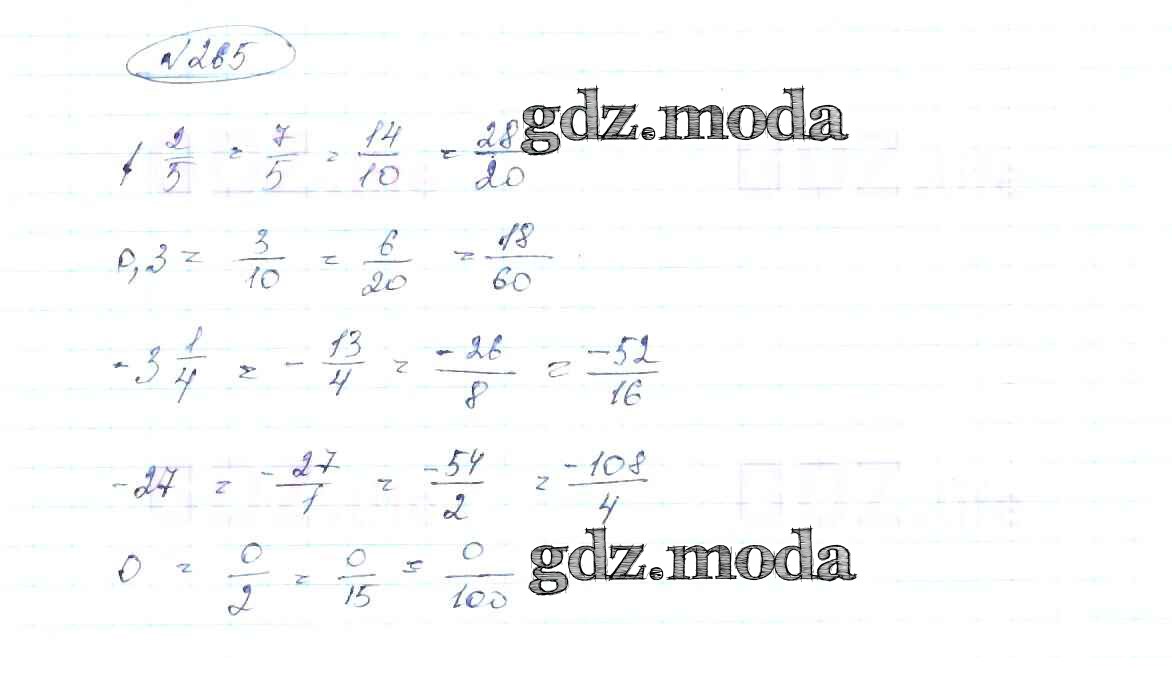 №265
1 2/5 = 7/5 = 14/10 = 28/20
gdz.moda
0,3 = 3/10 = 6/20 = 18/60
-3 1/4 = - 13/4 = -26/8 = -52/16
-27 = -27/1 = -54/2 = -108/4
0 = 0/2 = 0/15 = 0/100
gdz.moda